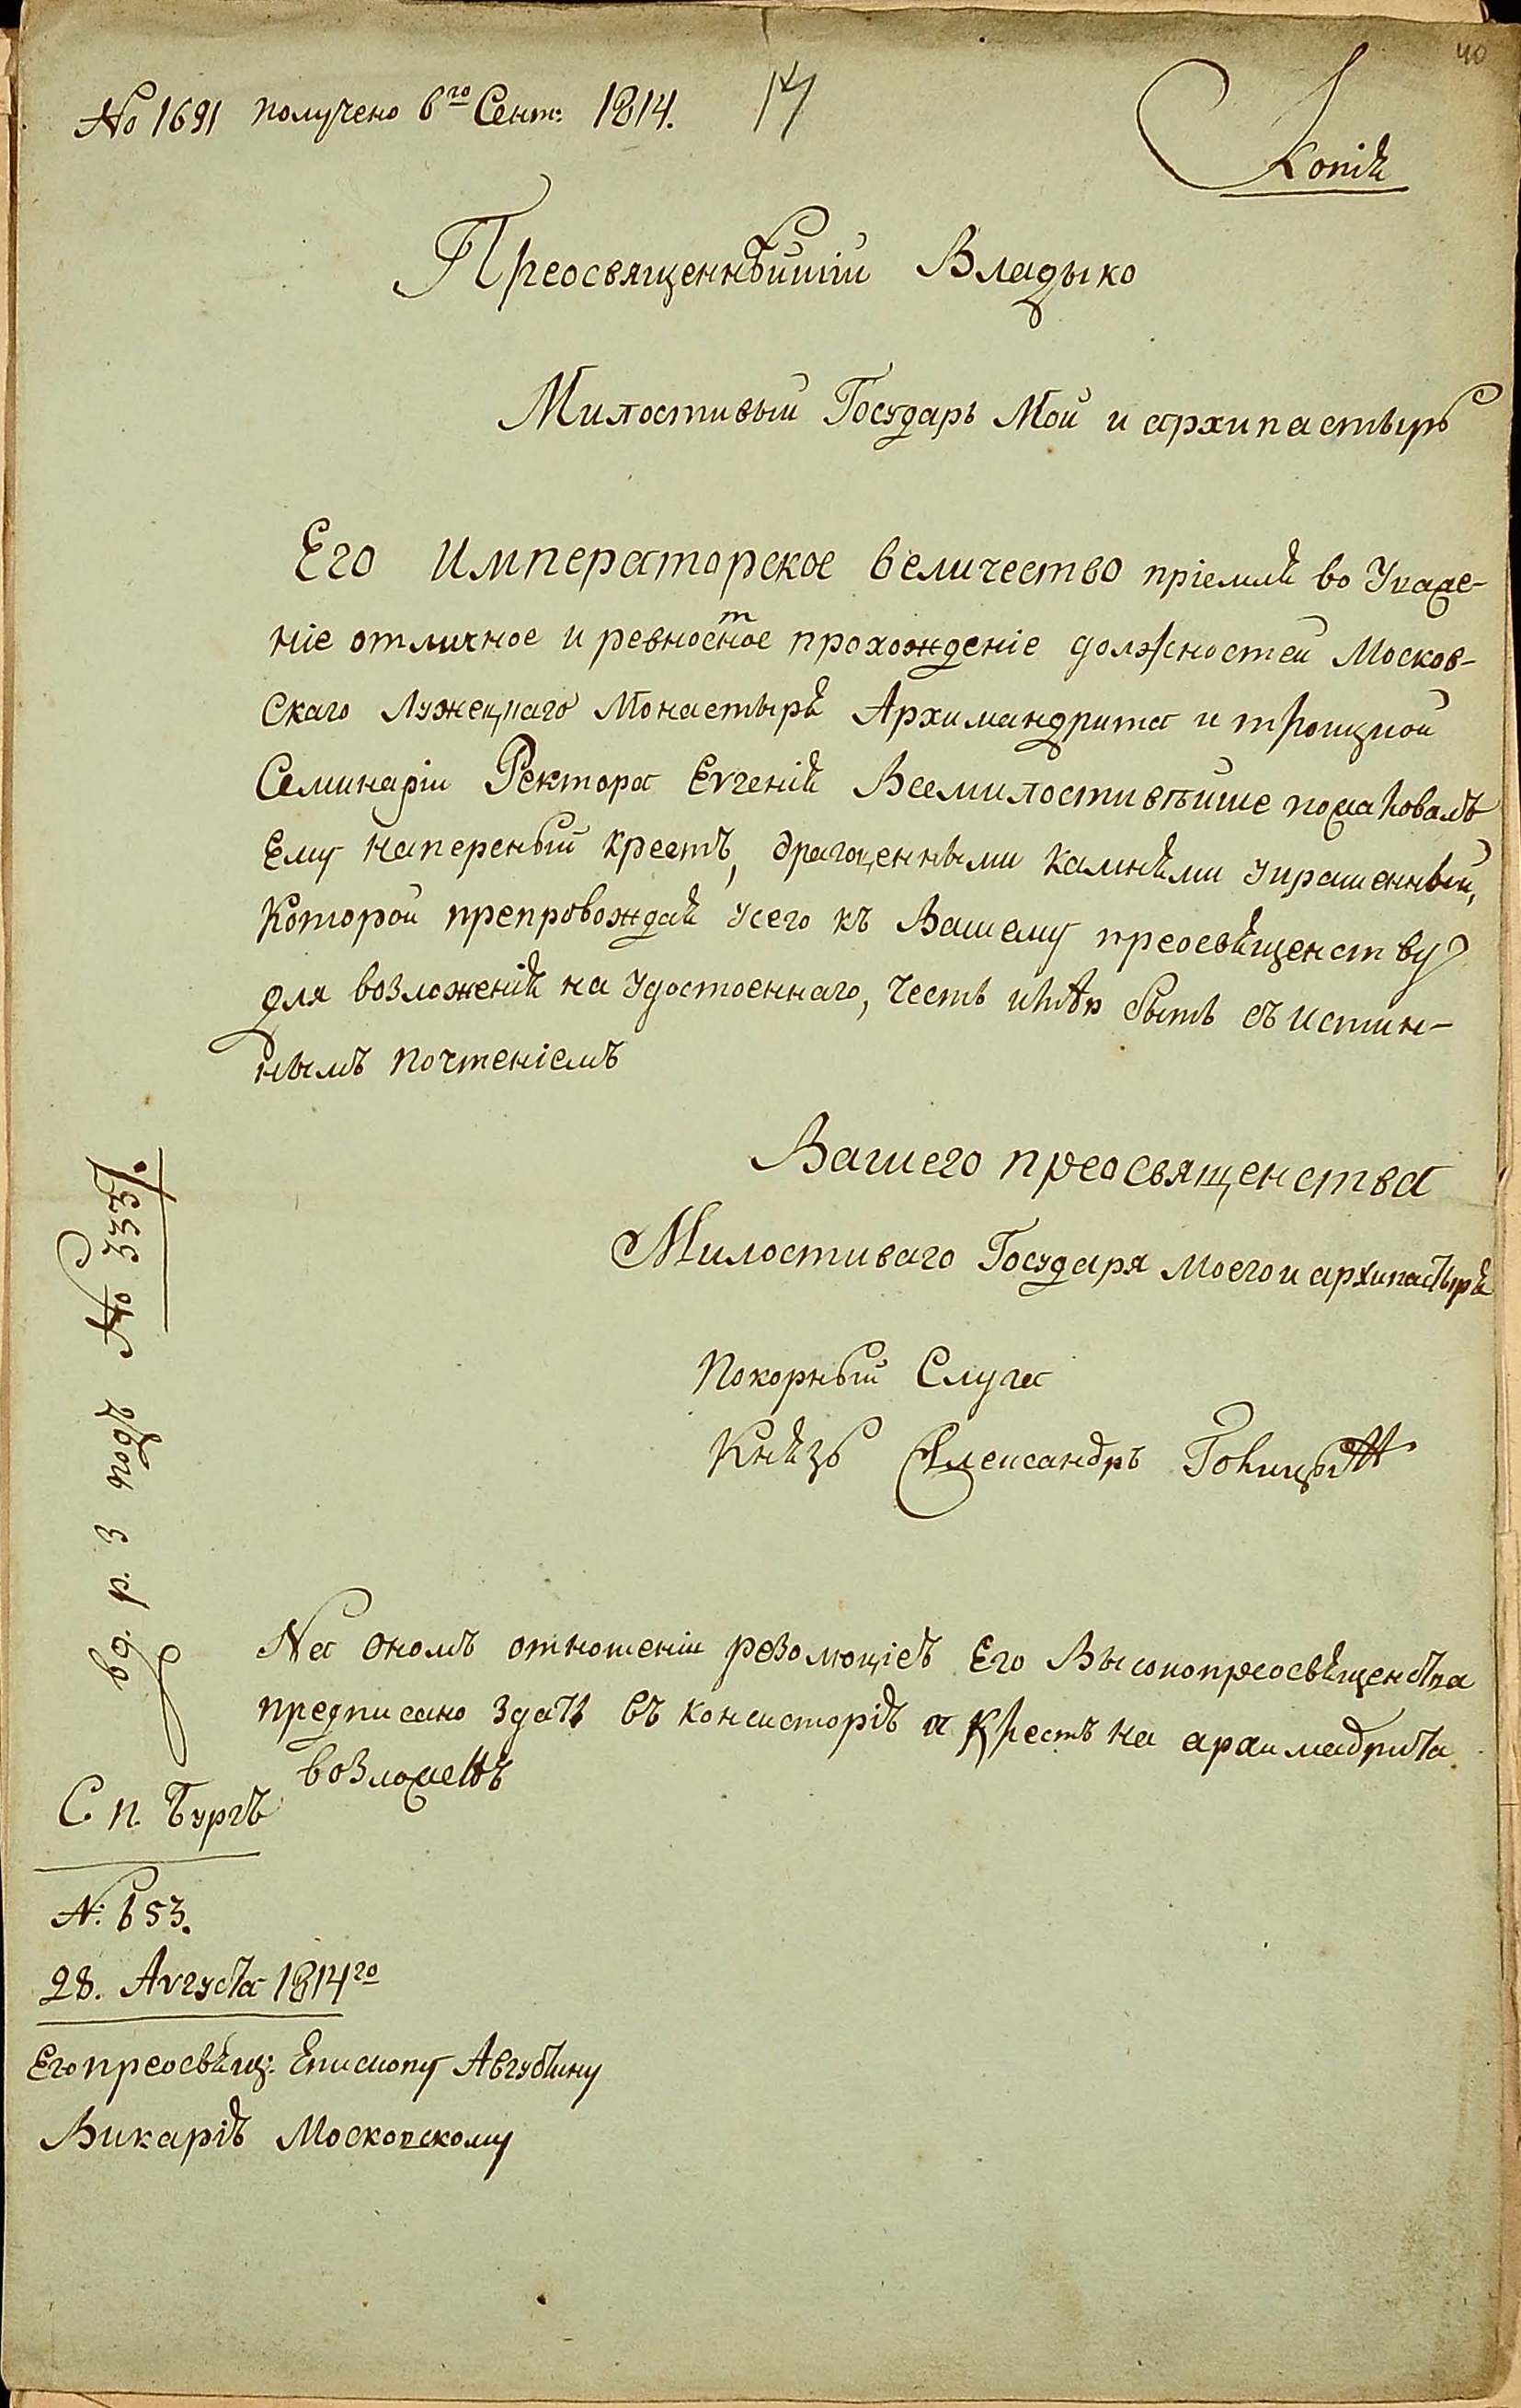 40
№ 1691 получено 6го Сент: 1814.
14
Копія
Преосвященнѣйшій Владыко
Милостивый Государь Мой и архипастырь
Его Императорское величество пріемля во Уваже-
ніе отличное и ревностное прохожденіе должностей Москов-
Скаго Лужецкаго Монастыря Архимандрита и троицкой
Семинаріи Ректора Евгенія Всемилостивѣйше пожаловалъ
Ему наперсный крестъ, драгоценными камнями украшенный,
Которой препровождая у сего къ Вашему преосвященству
для возложенія на удостоеннаго, честь имѣю быть съ истин-
нымъ почтеніемъ
Вашего преосвященства
Милостиваго Государя моего и архипастыря
Покорный Слуга
Князь Александръ Голицынъ
На ономъ отношеніи резолюціею Его Высокопреосвященства
предписано здать въ консисторію а крестъ на архимадрита
возложенъ
№ 333
С. п. Бургъ
№: 653.
28. Августа 1814го
Его преосвящ: Епископу Августину
Викарію Московскому